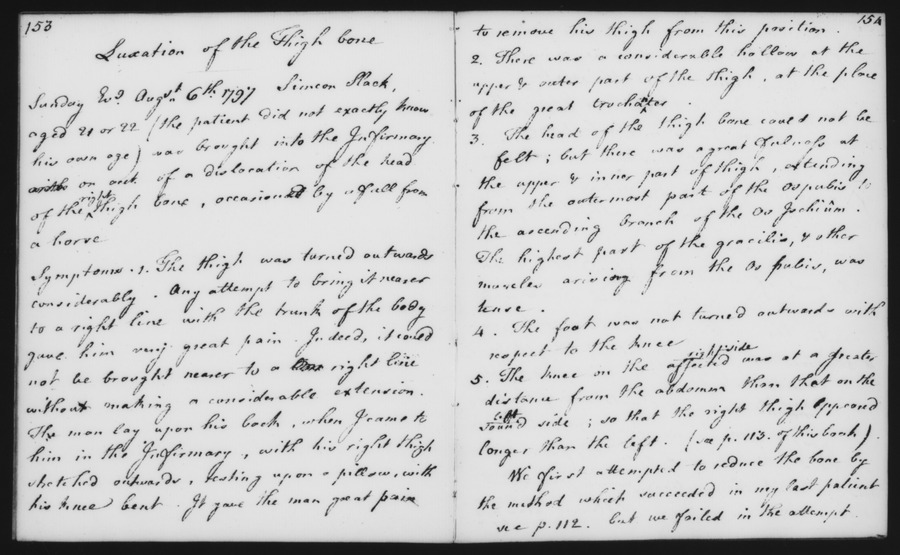 153
Luxation of the Thigh bone
Sunday Evg. Augst. 6th. 1797 Simeon Slack,
aged 21 or 22 (the patient did not exactly know
his own age) was brought into the Infirmary
on acct. of a dislocation of the head
of the right Thigh bone, occasioned by a fall from
a horse
Symptoms. 1. The thigh was turned outwards
considerably. Any attempt to bring it nearer
to a right line with the trunk of the body
gave him very great pain. Indeed, it could
not be brought nearer to a right line
without making a considerable extension.
The man lay upon his back, when I came to
him in the Infirmary, with his right thigh
stretched outwards, resting upon a pillow, with
his knee bent. It gave the man great pain
154
to remove his thigh from this position.
2. There was a considerable hollow at the
upper & outer part of the thigh, at the place
of the great trochanter.
3. The head of the thigh bone could not be
felt; but there was a great fulness at
the upper & inner part of thigh, extending
from the outermost part of the os pubis to
the ascending branch of the Os Ischium.
The highest part of the gracilis, & other
muscles arising from the Os pubis, was
tense.
4. The foot was not turned outwards with
respect to the knee
5. The knee on the affected right side was at a greater
distance from the abdomen than that on the
sound left side; so that the right thigh appeared
longer than the left. (see p. 113. of this book).
We first attempted to reduce the bone by
the method which succeeded in my last patient
see p. 112. but we failed in the attempt.